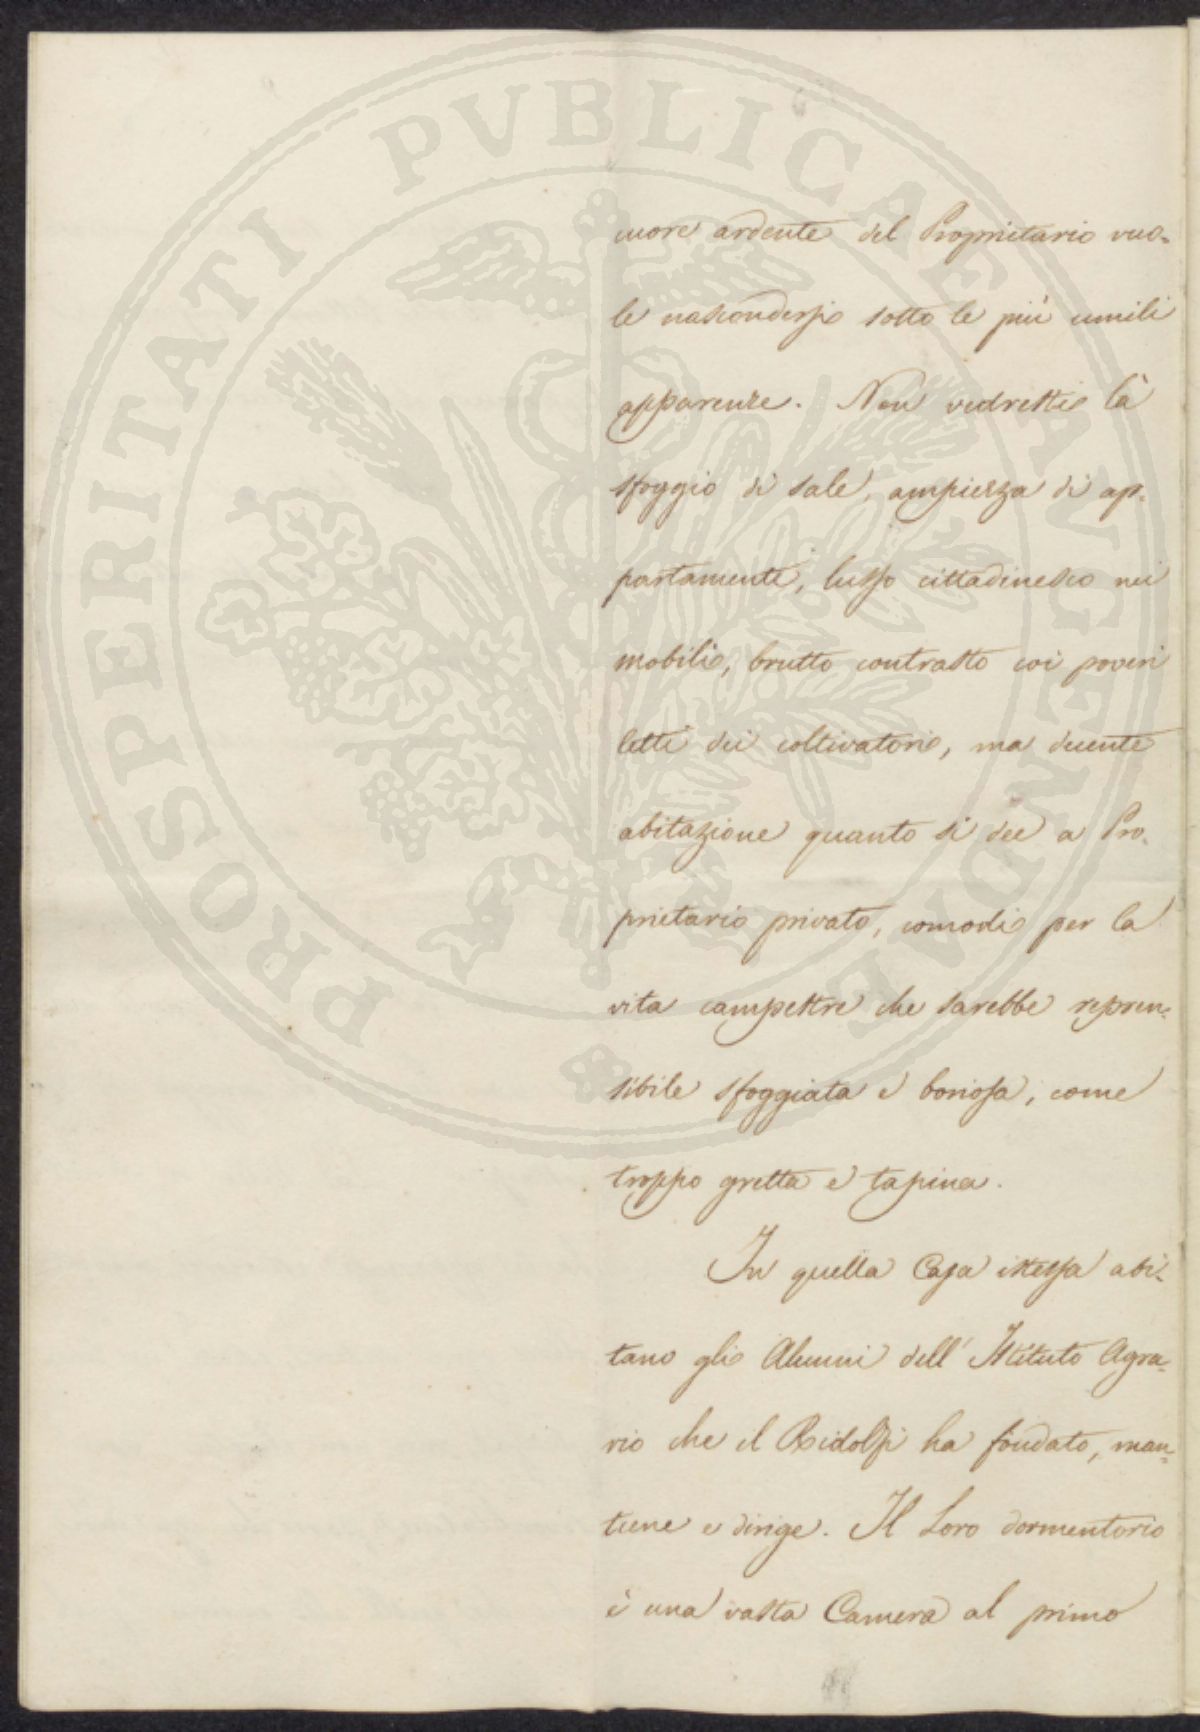 PROSPERITATI PUBLICAE AVGENDAE
cuore ardente del Proprietario vuo-
le nascondersi sotto le più umili
apparenze. Non vedresti là
sfoggio di sale, ampiezza di ap-
partamenti, lusso cittadinesco nei
mobili, brutto contrasto coi poveri
letti dei coltivatori, ma decente
abitazione quanto si dee a Pro-
prietario privato, comodi per la
vita campestre che sarebbe repren-
sibile sfoggiata e boriosa, come
troppo gretta e tapina.
In quella Casa istessa abi-
tano gli Alunni dell'Istituto Agra-
rio che il Ridolfi ha fondato, man-
tiene e dirige. Il Loro dormentorio
è una vasta Camera al primo